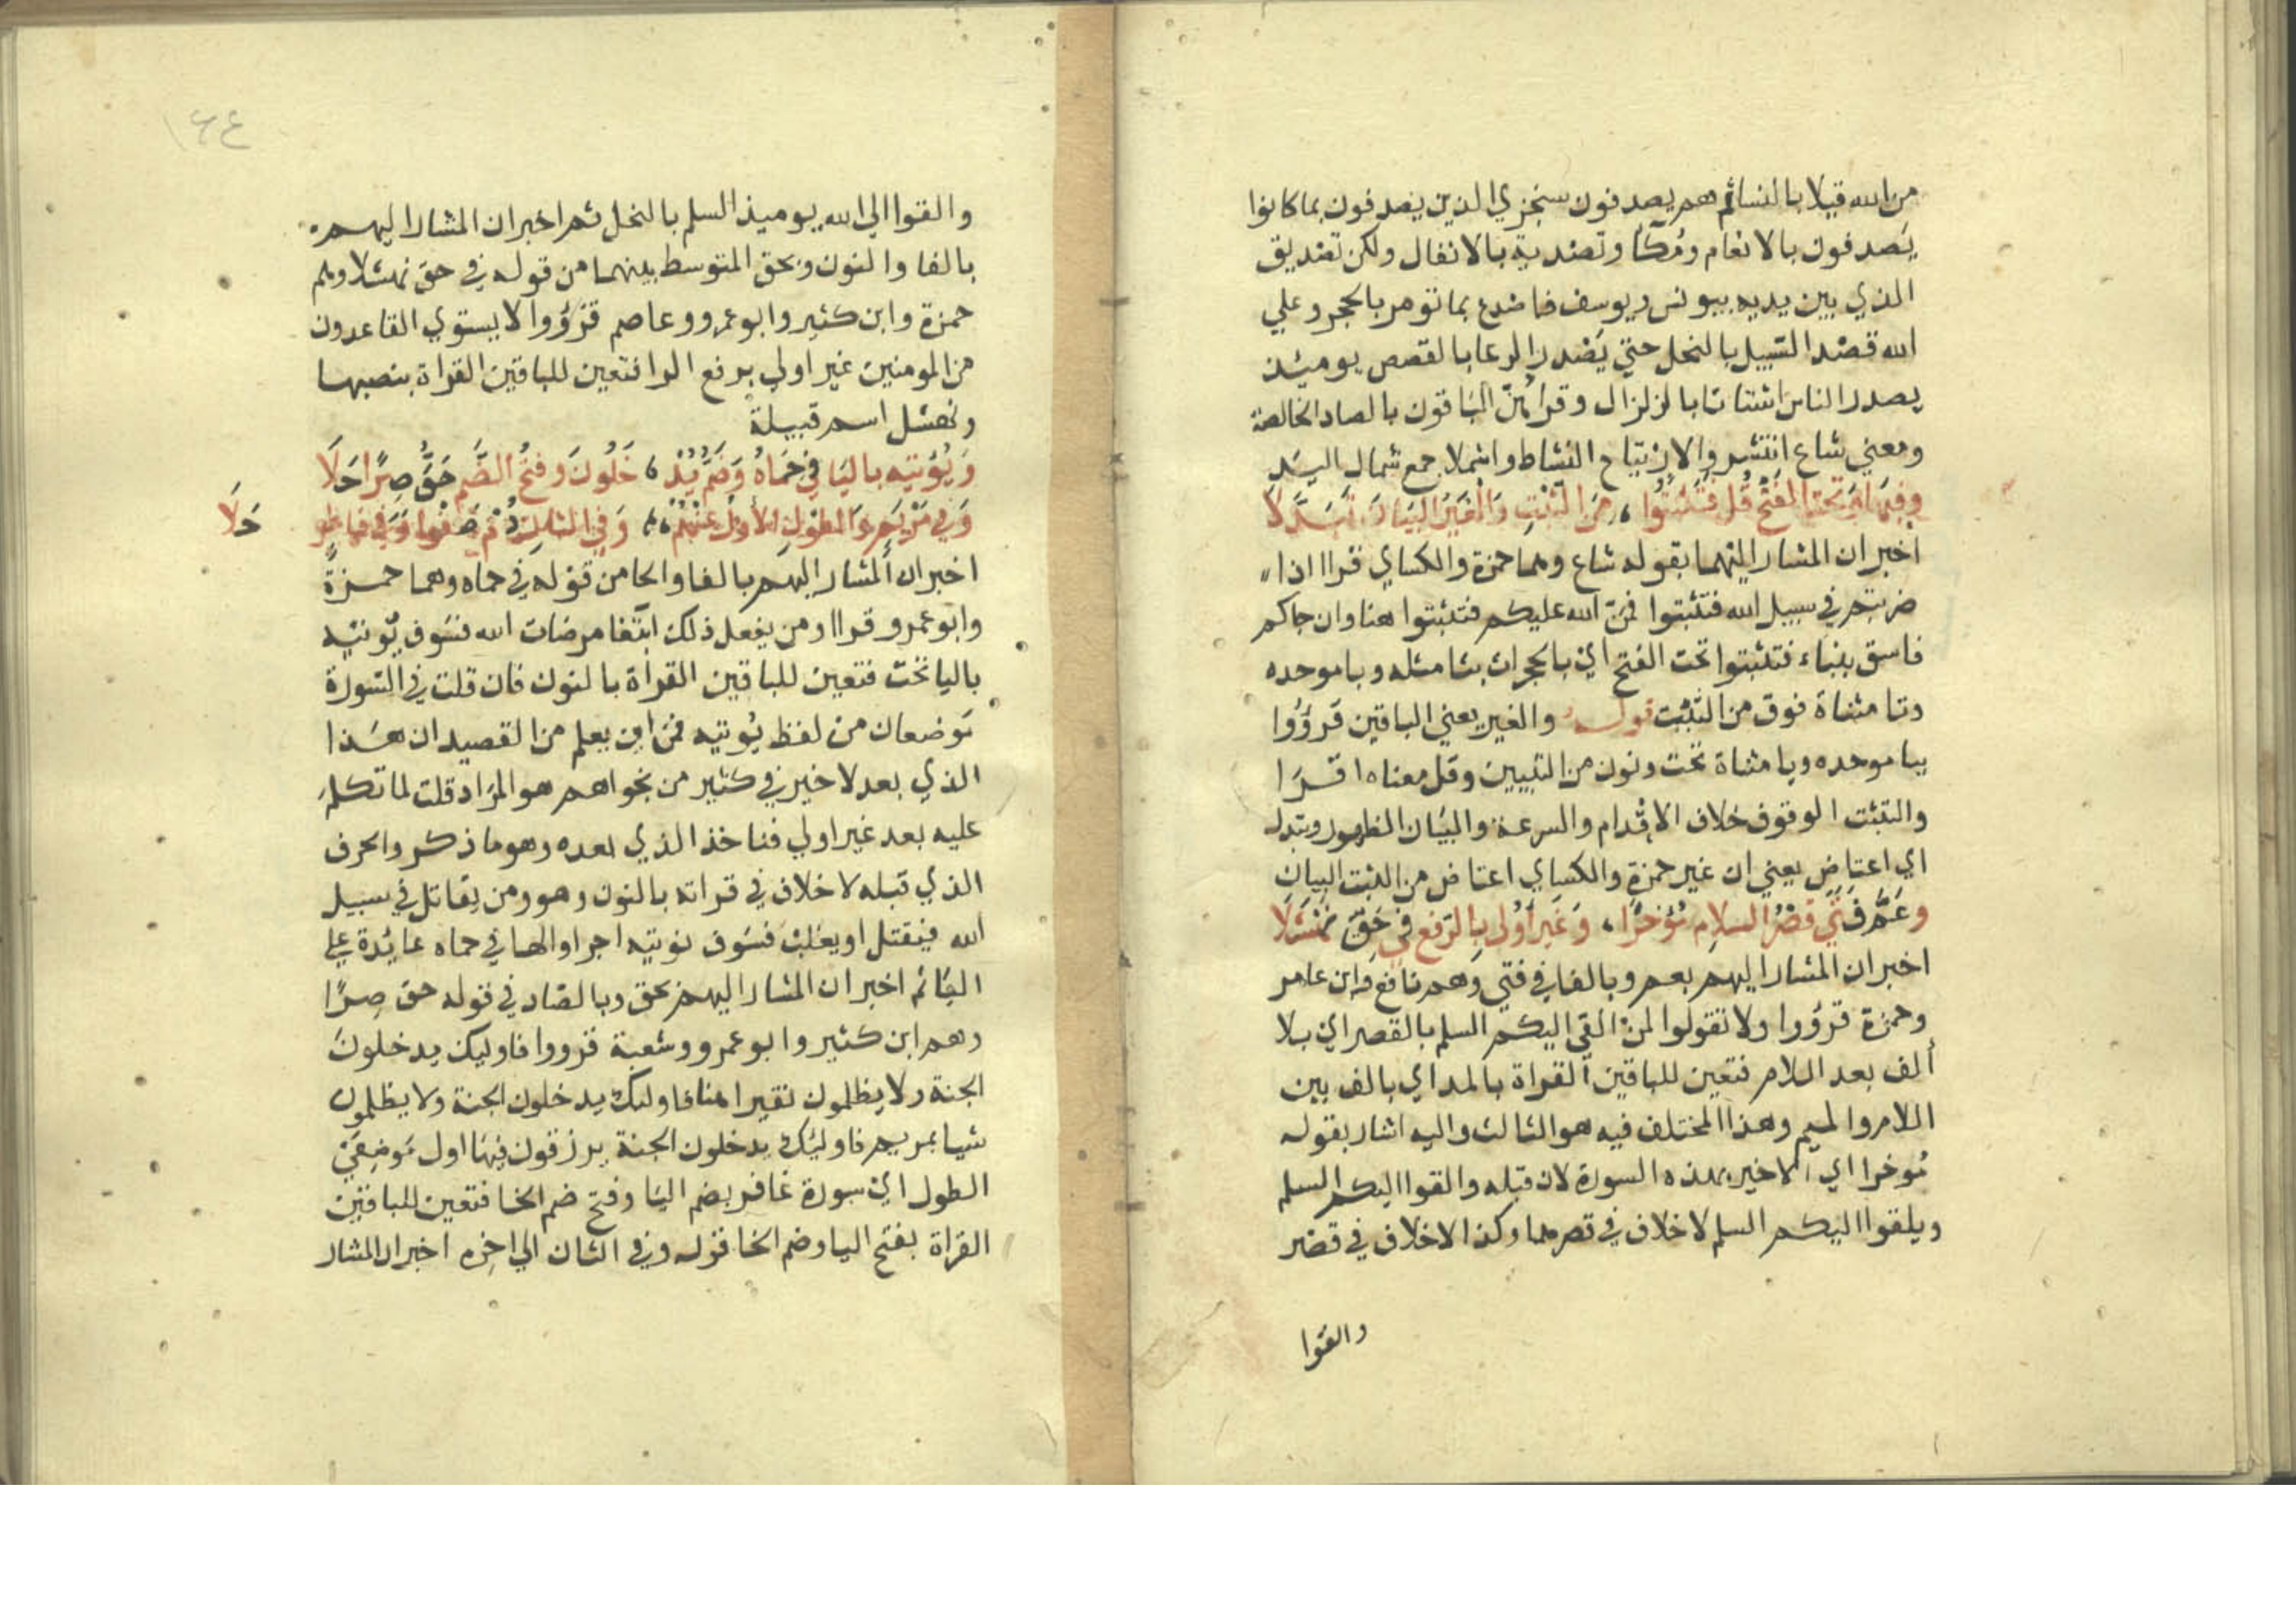 من الله قيلا بالنسا ثم هم يصدفون سنجزي الذين يصدفون بما كانوا
يصدفون بالانعام ومكا وتصدية بالانفال ولكن تصديق
الذي بين يديه بيونس ويوسف فاصدع بما تومر بالحجر وعلي
الله قصد السبيل بالنحل حتي يصدر الرعا بالقصص يوميذ
يصدر الناس اشتاتا بالزلزال وقراهن الباقون بالصاد الخالصة
ومعني شاع انتشر والارتياح النشاط واشملا جمع شمال اليد
وفيها وتحت الفتح قل فتثبتوا، من الثبت والغير البيان تبدلا
اخبر ان المشار اليهما بقوله شاع وهما حمزة والكساي قراا اذا
ضربتم في سبيل الله فتثبتوا فمن الله عليكم فتثبتوا هنا وان جاكم
فاسق بنباء فتثبتوا تحت الفتح اي بالحجرات بثا مثلثه وبا موحده
وتا مثناة فوق من التثبت قوله والغير يعني الباقين قرؤوا
ببا موحده ويا مثناة تحت ونون من التبيين وقل معناه اقرا
والتثبت الوقوف خلاف الاقدام والسرعة والبيان الظهور وتبدل
اي اعتاض يعني ان غير حمزة والكساي اعتاض من الثبت البيان
وعم فتي قصر السلام مؤخرا، وغير اولي بالرفع في حق نهشلا
اخبر ان المشار اليهم بعم وبالفا في فتي وهم نافع وابن عامر
وحمزة قرؤوا ولا تقولوا لمن القي اليكم السلم بالقصر اي بلا
ألف بعد اللام فتعين للباقين القراة بالمد اي بالف بين
اللام والميم وهذا المختلف فيه هو الثالث واليه اشار بقوله
مؤخرا اي الاخير بهذه السورة لان قبله والقوا اليكم السلم
ويلقوا اليكم السلم لا خلاف في قصرهما وكذا لا خلاف في قصر
والقوا
١٢٤
والقوا الي الله يوميذ السلم بالنحل ثم اخبر ان المشار اليهم
بالفا والنون وبحق المتوسط بينهما من قوله في حق نهشلا وهم
حمزة وابن كثير وابو عمرو وعاصم قرؤوا لا يستوي القاعدون
من المومنين غير اولي برفع الرا فتعين للباقين القراة بنصبها
ونهشل اسم قبيلة
ويؤتيه باليا في حماه وضم يد، خلون وفتح الضم حق صرا حلا
وفي مريم والطول الأول عنهم، وفي الثان دم صفوا وفي فاطر حلا
اخبر ان المشار اليهم بالفا والحا من قوله في حماه وهما حمزة
وابو عمرو قراا ومن يفعل ذلك ابتغا مرضات الله فسوف يؤتيه
باليا تحت فتعين للباقين القراة بالنون فان قلت في السورة
موضعان من لفظ يؤتيه فمن اين يعلم من القصيد ان هذا
الذي بعد لا خير في كثير من نجواهم هو المراد قلت لما تكلم
عليه بعد غير اولي فناخذ الذي بعده وهو ما ذكر والحرف
الذي قبله لا خلاف في قراته بالنون وهو ومن يقاتل في سبيل
الله فيقتل او يغلب فسوف نوتيه اجرا والها في حماه عايدة علي
القائم اخبر ان المشار اليهم بحق وبالصاد في قوله حق صرا
وهم ابن كثير وابو عمرو وشعبة قرووا فاوليك يدخلون
الجنة ولا يظلمون نقيرا هنا فاوليك يدخلون الجنة ولا يظلمون
شيا بمريم فاوليك يدخلون الجنة يرزقون فيها اول موضعي
الطول اي سورة غافر بضم اليا وفتح ضم الخا فتعين للباقين
القراة بفتح اليا وضم الخا قوله وفي الثان الي اخره اخبر ان المشار